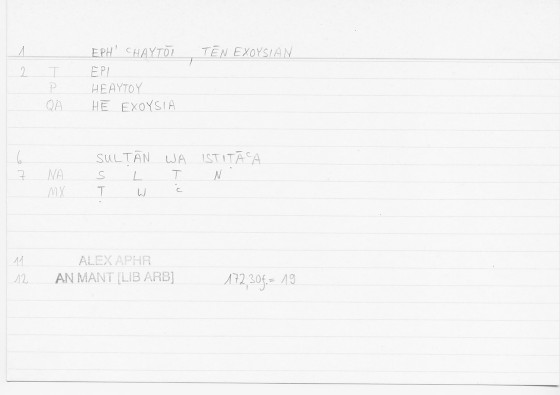 1 EPH' ʿHAYTŌI , TĒN EXOYSIAN
2 T EPI
P HEAYTOY
QA HĒ EXOYSIA
6 SULṬĀN WA ISTIṬĀʿA
7 NA S L Ṭ N
MX Ṭ W ʿ
11 ALEX APHR
12 AN MANT [LIB ARB] 172,30f.= 19